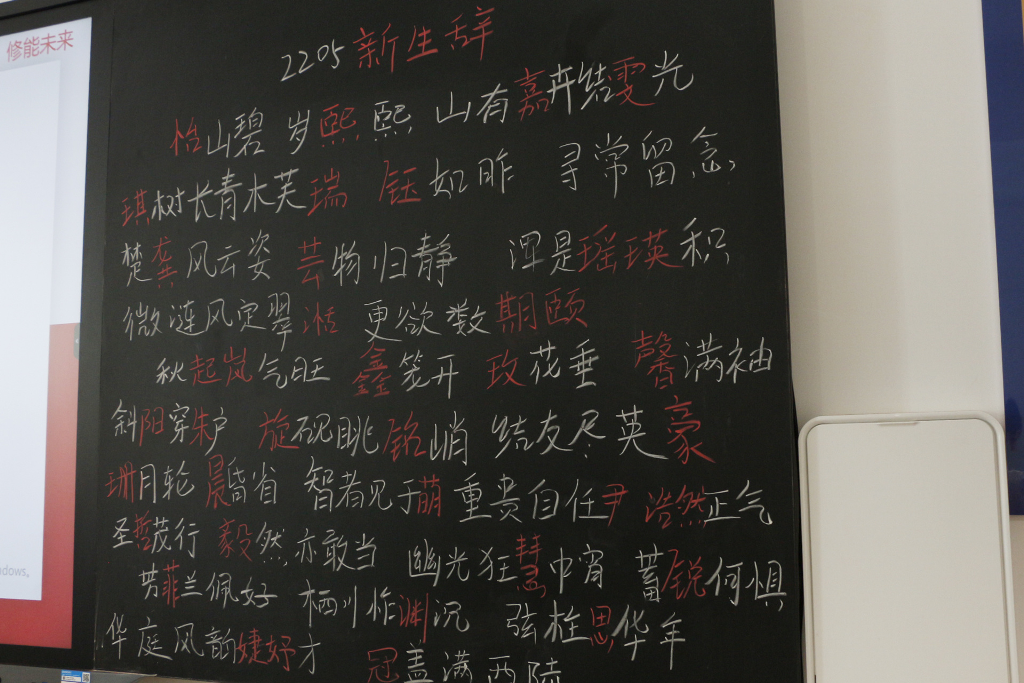 修能未来
2205新生辞
怡山碧 岁熙熙 山有嘉卉结雯光
琪树长青木芙瑞 钰如昨 寻常留念
楚龚风云姿 芸物归静 浑是瑶瑛积
微涟风定翠湉 更欲数期颐
秋起岚气旺 鑫笼开 玫花垂 馨满袖
斜阳穿朱户 旋砚眺铭峭 结友尽英豪
珊月轮 晨昏省 智者见于萌 重贵自任尹 浩然正气
圣哲茂行 毅然亦敢当 幽光狂彗中宵 蓄锐何惧
芳菲兰佩好 栖川怍渊沉 弦柱思华年
华庭风韵婕妤才 冠盖满西陆
ndows。